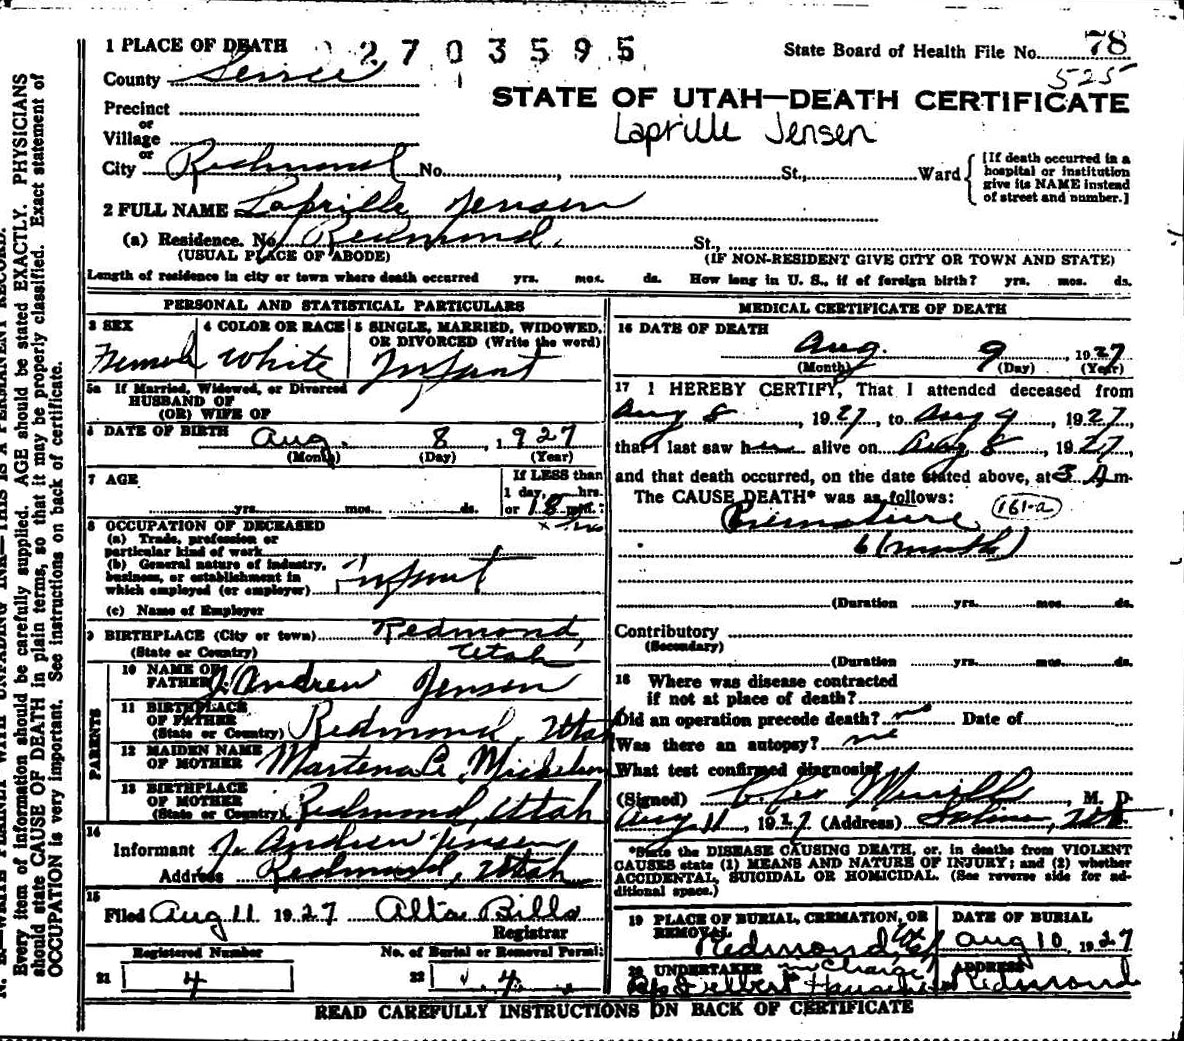 N. B.—WRITE PLAINLY WITH UNFADING INK—THIS IS A PERMANENT RECORD.
Every item of information should be carefully supplied. AGE should be stated EXACTLY. PHYSICIANS
should state CAUSE OF DEATH in plain terms, so that it may be properly classified. Exact statement of
OCCUPATION is very important. See instructions on back of certificate.
1 PLACE OF DEATH
2703595
State Board of Health File No. 78
525
County Sevier
STATE OF UTAH—DEATH CERTIFICATE
Laprille Jensen
Precinct
or
Village
or
City Redmond No. , St., Ward
[If death occurred in a
hospital or institution
give its NAME instead
of street and number.]
2 FULL NAME Laprille Jensen
(a) Residence. No. Redmond, St.,
(USUAL PLACE OF ABODE) (IF NON-RESIDENT GIVE CITY OR TOWN AND STATE)
Length of residence in city or town where death occurred yrs. mos. ds. How long in U. S., if of foreign birth? yrs. mos. ds.
PERSONAL AND STATISTICAL PARTICULARS
3 SEX Female
4 COLOR OR RACE White
5 SINGLE, MARRIED, WIDOWED,
OR DIVORCED (Write the word)
Infant
5a If Married, Widowed, or Divorced
HUSBAND OF
(OR) WIFE OF
6 DATE OF BIRTH Aug. 8, 1927
(Month) (Day) (Year)
7 AGE
yrs. mos. ds.
If LESS than
1 day, hrs.
or 18 min.
8 OCCUPATION OF DECEASED
(a) Trade, profession or
particular kind of work
(b) General nature of industry,
business, or establishment in
which employed (or employer)
Infant
(c) Name of Employer
9 BIRTHPLACE (City or town) Redmond,
(State or Country) Utah
PARENTS
10 NAME OF
FATHER J. Andrew Jensen
11 BIRTHPLACE
OF FATHER
(State or Country) Redmond, Utah
12 MAIDEN NAME
OF MOTHER Martena Mickelsen
13 BIRTHPLACE
OF MOTHER
(State or Country) Redmond, Utah
14
Informant J. Andrew Jensen
Address Redmond, Utah
15
Filed Aug 11 1927 Alta Bills
Registrar
Registered Number
No. of Burial or Removal Permit
21 4
22 4
MEDICAL CERTIFICATE OF DEATH
16 DATE OF DEATH
Aug. 9, 1927
(Month) (Day) (Year)
17 I HEREBY CERTIFY, That I attended deceased from
Aug 8, 1927, to Aug 9, 1927
that I last saw her alive on Aug. 8, 1927,
and that death occurred, on the date stated above, at 3 A m.
The CAUSE DEATH* was as follows:
Premature 161-a
6 (months)
(Duration yrs. mos. ds.
Contributory
(Secondary)
(Duration yrs. mos. ds.
18 Where was disease contracted
if not at place of death?
Did an operation precede death? no Date of
Was there an autopsy? no
What test confirmed diagnosis?
(Signed) Merrill, M. D.
Aug 11, 1927 (Address) Salina, Ut
*State the DISEASE CAUSING DEATH, or, in deaths from VIOLENT
CAUSES state (1) MEANS AND NATURE OF INJURY; and (2) whether
ACCIDENTAL, SUICIDAL OR HOMICIDAL. (See reverse side for ad-
ditional space.)
19 PLACE OF BURIAL, CREMATION, OR
REMOVAL
Redmond, Ut
DATE OF BURIAL
Aug 10 1927
20 UNDERTAKER in Charge
Delbert
ADDRESS
Redmond
READ CAREFULLY INSTRUCTIONS ON BACK OF CERTIFICATE